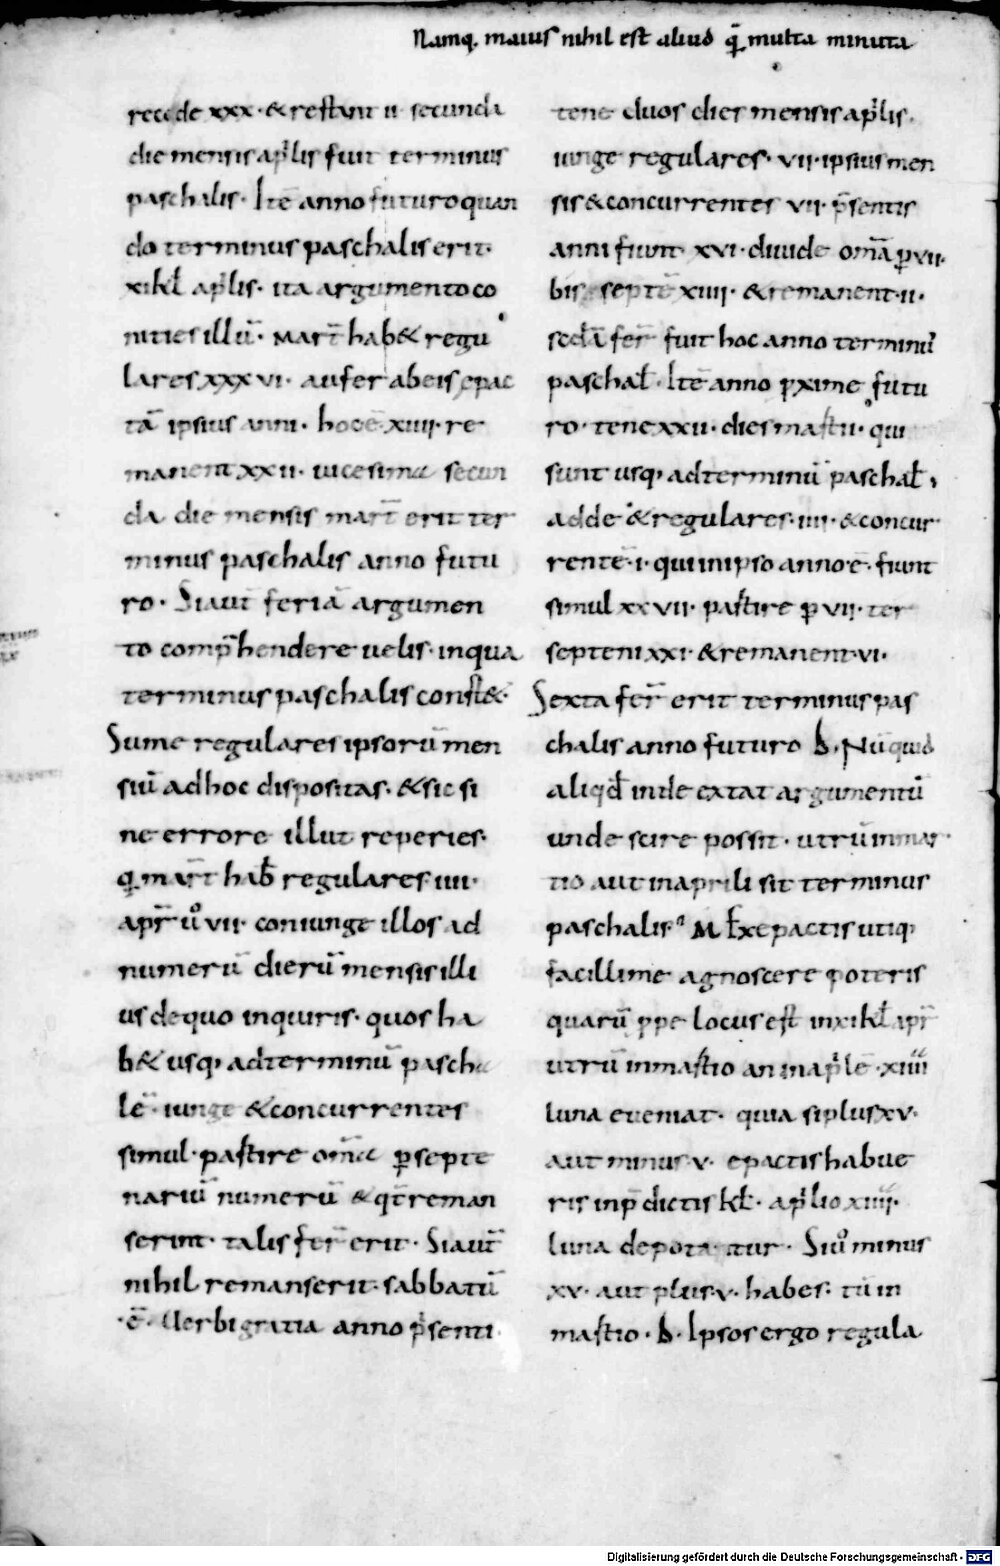 Namq. maius nihil est aliud qm̄ multa minuta
recede xxx · & restant ii secunda
die mensis aplis fuit terminus
paschalis · Itē anno futuro quan
do terminus paschalis erit ·
xi kl aplis · ita argumento co
nities illū · mart̄ hab& regu
lares xxxvi · aufer ab eis epac
tā ipsius anni · hoc ē xiiii · re
manent xxii · uicesima secun
da die mensis mart̄ erit ter
minus paschalis anno futu
ro · Si aut̄ feriā argumen
to comp̄hendere uelis · in qua
terminus paschalis const& ·
Sume regulares ipsorū men
siū ad hoc dispositas · & sic si
ne errore illut reperies ·
q. mart̄ hab̄ regulares iiii ·
apr̄ ūo vii · coniunge illos ad
numerū dierū mensis illi
us de quo inquiris · quos ha
b& usq. ad terminū pascha
lē · iunge & concurrentes
simul · partire om̄a p septe
nariū numerū & qt̄ reman
serint · talis fer̄ erit · Si aut̄
nihil remanserit · sabbatū
· ē · Uerbi gratia anno p̄senti
tene duos dies mensis aplis ·
iunge regulares · vii · ipsius men
sis & concurrentes vii · p̄sentis
anni fiunt xvi · diuide om̄a p vii ·
bis septē xiiii · & remanent · ii ·
scdā fer̄ fuit hoc anno terminus
paschal · Itē anno pxime futu
ro · tene xxii · dies martii · qui
sunt usq. ad terminū paschal ·
adde & regulares · iiii · & concur
rentē · i · qui in ipso anno ē · fiunt
simul xxvii · partire p vii · ter
septeni xxi · & remanent · vi ·
Sexta fer̄ erit terminus pas
chalis anno futuro D · Nūquid
aliqd inde extat argumentū
unde scire possit · utrū in mar
tio aut in aprili sit terminus
paschalis M Ex epactis utiq.
facillime agnoscere poteris
quarū ppe locus est in xi kl apr̄
utrū in martio an in aplē · xiiii
luna eueniat · quia si plus xv ·
aut minus · v · epactis habue
ris in p̄dictis kl · aplio xiiii ·
luna deputatur · Si ūo minus
xv · aut plus · v · habes · tū in
martio · D · Ipsos ergo regula
Digitalisierung gefördert durch die Deutsche Forschungsgemeinschaft - DFG